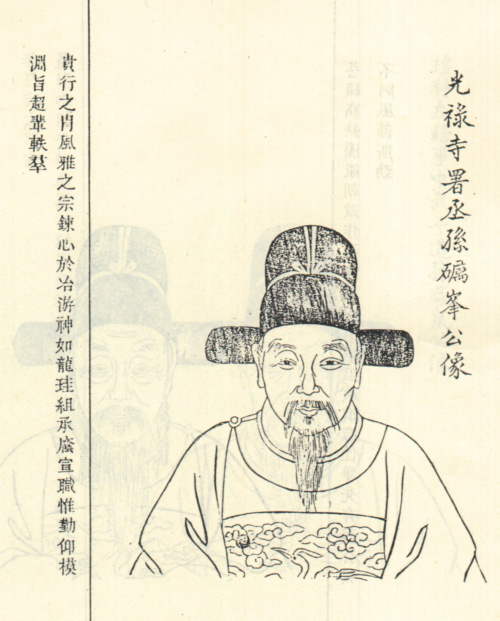 光祿寺署丞孫礪峯公像
貴行之冑風雅之宗鍊心於冶游神如龍珪組承廕宣職惟勤仰模
淵旨超輩軼羣